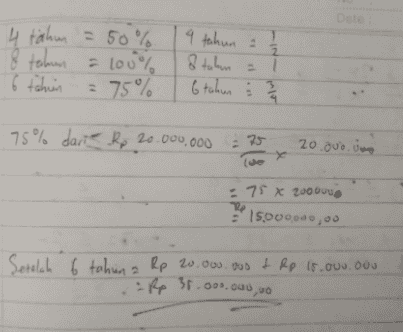 Date :
4 tahun = 50% | 4 tahun = 1/2
8 tahun = 100% | 8 tahun = 1
6 tahun = 75% | 6 tahun = 3/4
75% dari Rp 20.000.000 = 75/100 x 20.000.000
= 75 x 200000
= Rp 15.000.000,00
Setelah 6 tahun = Rp 20.000.000 + Rp 15.000.000
= Rp 35.000.000,00